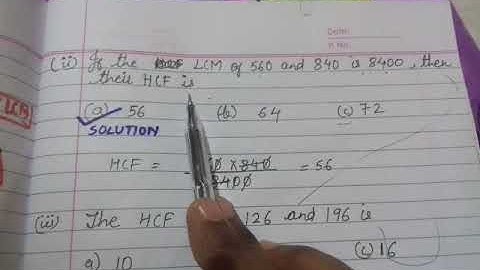 Date:
P. No:
(ii) If the LCM of 560 and 840 is 8400, then
their HCF is
(a) 56 (b) 64 (c) 72
SOLUTION
HCF = 0 x 840 = 56
8400
(iii) The HCF 126 and 196 is
a) 10 (c) 16
LCM